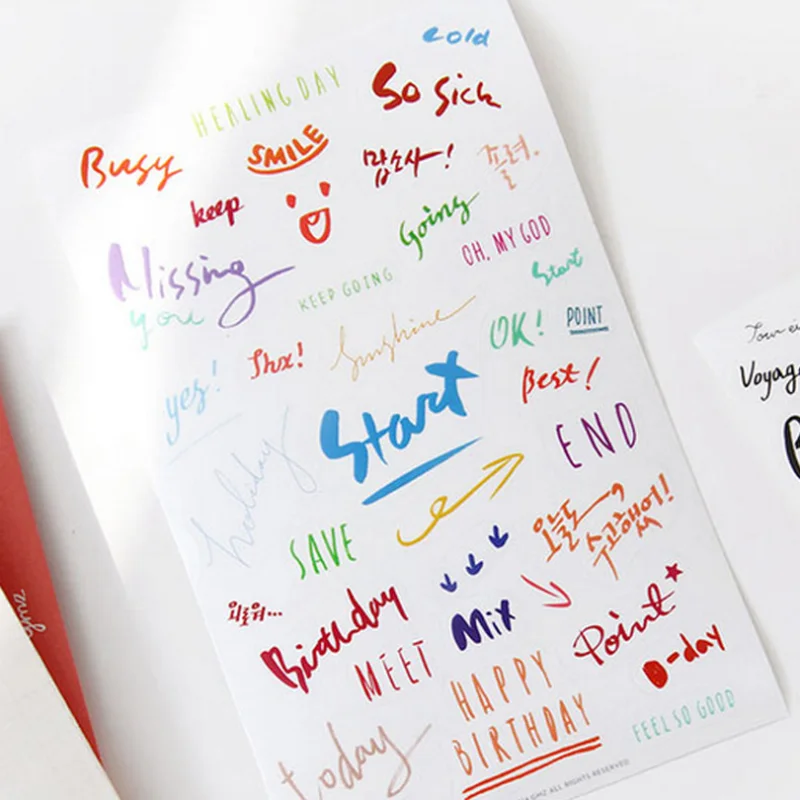 cold
HEALING DAY
So Sick
Busy
SMILE
맙소사!
졸려.
keep
Going
OH, MY GOD
Missing
you
KEEP GOING
Start
yes!
Thx!
Sunshine
OK!
POINT
Start
Best!
holiday
END
SAVE
오늘도,
수고했어!
외로워...
Birthday
Mix
Point
MEET
D-day
HAPPY
BIRTHDAY
FEEL SO GOOD
today
ALL RIGHTS RESERVED